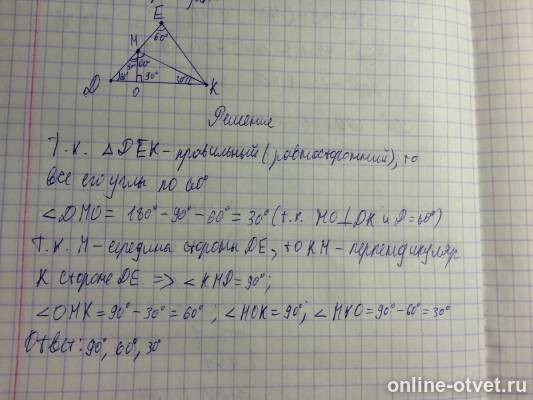 E
60°
M
30° 60°
D 60° 90° 30° K
O
Решение
Т.к. △DEK - правильный (равносторонний), то
все его углы по 60°
∠DMO = 180° - 90° - 60° = 30° (т.к. MO⊥DK и D = 60°)
Т.к. M - середина стороны DE, то KM - перпендикуляр
к стороне DE => ∠KMD = 90°;
∠OMK = 90° - 30° = 60°; ∠MOK = 90°; ∠MKO = 90° - 60° = 30°
Ответ: 90°, 60°, 30°
online-otvet.ru